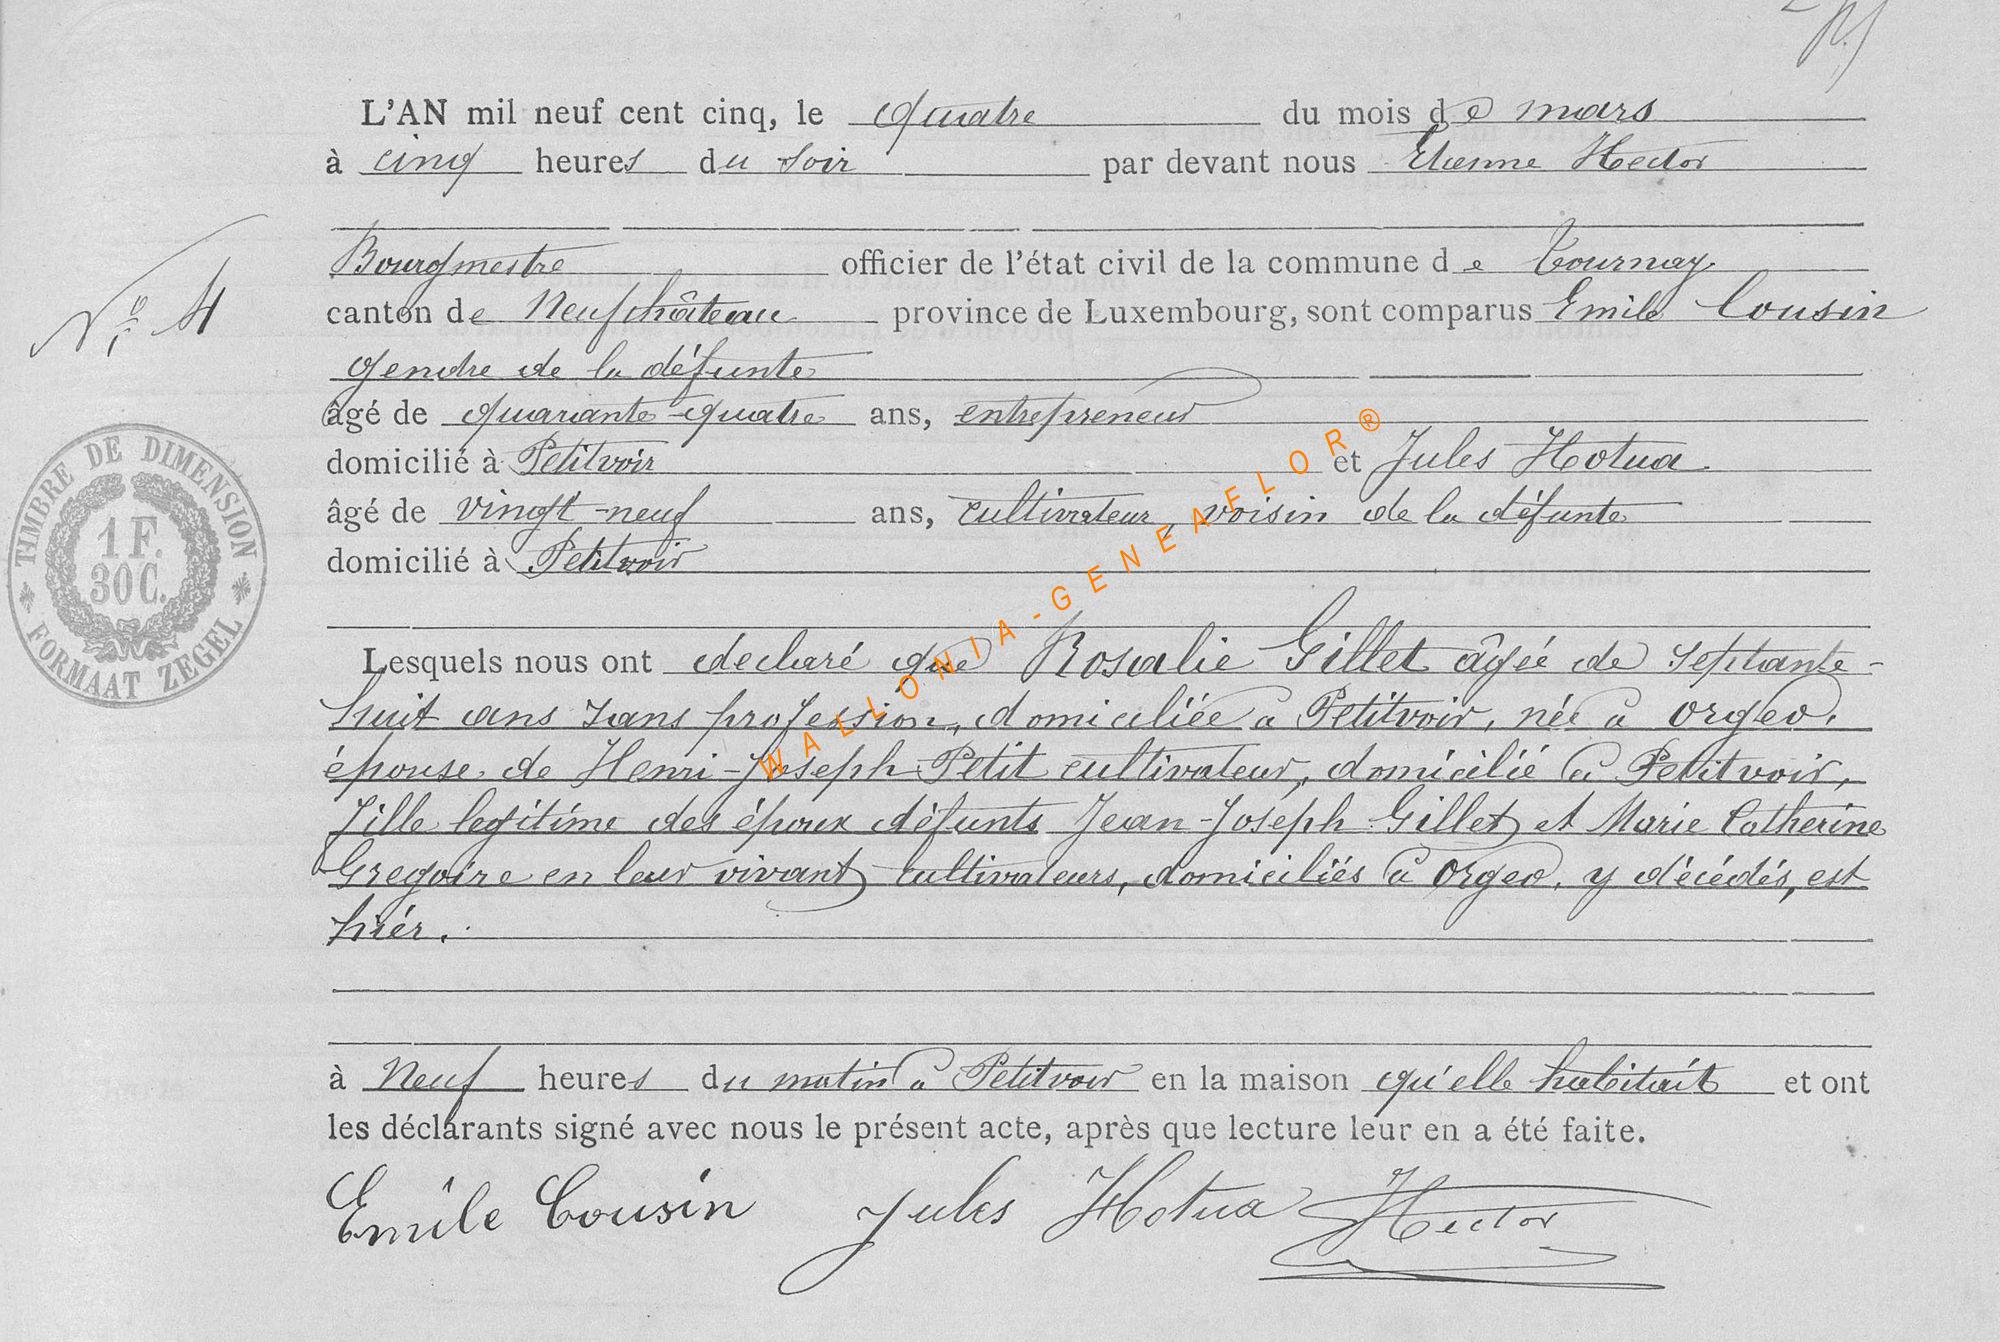 L'AN mil neuf cent cinq, le Quatre du mois de mars
à cinq heures du soir par devant nous Etienne Hector
Bourgmestre officier de l'état civil de la commune de Tournay
No 4
canton de Neufchâteau province de Luxembourg, sont comparus Emile Cousin
gendre de la défunte
âgé de quarante-quatre ans, entrepreneur
domicilié à Petitvoir et Jules Hotua
âgé de vingt-neuf ans, cultivateur, voisin de la défunte
domicilié à Petitvoir
TIMBRE DE DIMENSION
1 F.
30 C.
FORMAAT ZEGEL
WALLONIA-GENEAFLOR®
Lesquels nous ont declaré que Rosalie Gillet âgée de septante-
huit ans sans profession, domiciliée à Petitvoir, née à Orgeo,
épouse de Henri-Joseph Petit cultivateur, domicilié à Petitvoir,
fille legitime des époux défunts Jean-Joseph Gillet et Marie Catherine
Gregoire en leur vivant cultivateurs, domiciliés à Orgeo, y décédés, est
hier.
à Neuf heures du matin à Petitvoir en la maison qu'elle habitait et ont
les déclarants signé avec nous le présent acte, après que lecture leur en a été faite.
Emile Cousin Jules Hotua Hector